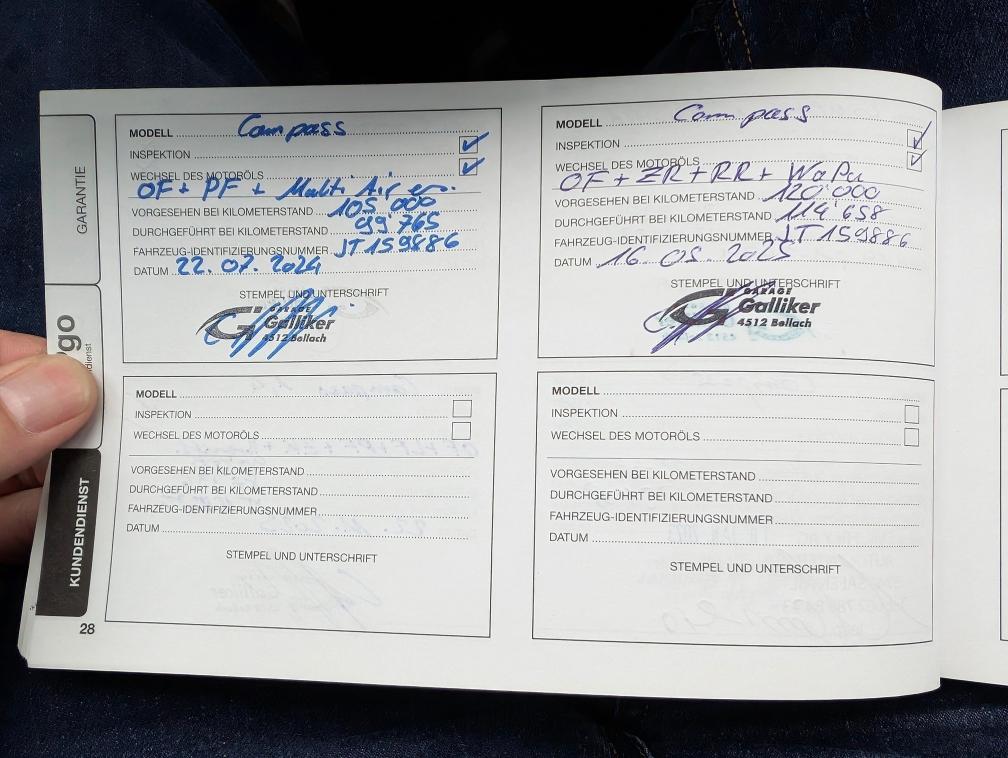 GARANTIE
KUNDENDIENST
28
MODELL Compass
INSPEKTION
WECHSEL DES MOTORÖLS
OF + PF + Multi Air
VORGESEHEN BEI KILOMETERSTAND 105'000
DURCHGEFÜHRT BEI KILOMETERSTAND 99'765
FAHRZEUG-IDENTIFIZIERUNGSNUMMER JT159886
DATUM 22.07.2024
STEMPEL UND UNTERSCHRIFT
GARAGE
Galliker
4512 Bellach
MODELL Compass
INSPEKTION
WECHSEL DES MOTORÖLS
OF + ZR + RR + WaPu
VORGESEHEN BEI KILOMETERSTAND 120'000
DURCHGEFÜHRT BEI KILOMETERSTAND 114'658
FAHRZEUG-IDENTIFIZIERUNGSNUMMER JT159886
DATUM 16.05.2025
STEMPEL UND UNTERSCHRIFT
GARAGE
Galliker
4512 Bellach
MODELL
INSPEKTION
WECHSEL DES MOTORÖLS
VORGESEHEN BEI KILOMETERSTAND
DURCHGEFÜHRT BEI KILOMETERSTAND
FAHRZEUG-IDENTIFIZIERUNGSNUMMER
DATUM
STEMPEL UND UNTERSCHRIFT
MODELL
INSPEKTION
WECHSEL DES MOTORÖLS
VORGESEHEN BEI KILOMETERSTAND
DURCHGEFÜHRT BEI KILOMETERSTAND
FAHRZEUG-IDENTIFIZIERUNGSNUMMER
DATUM
STEMPEL UND UNTERSCHRIFT